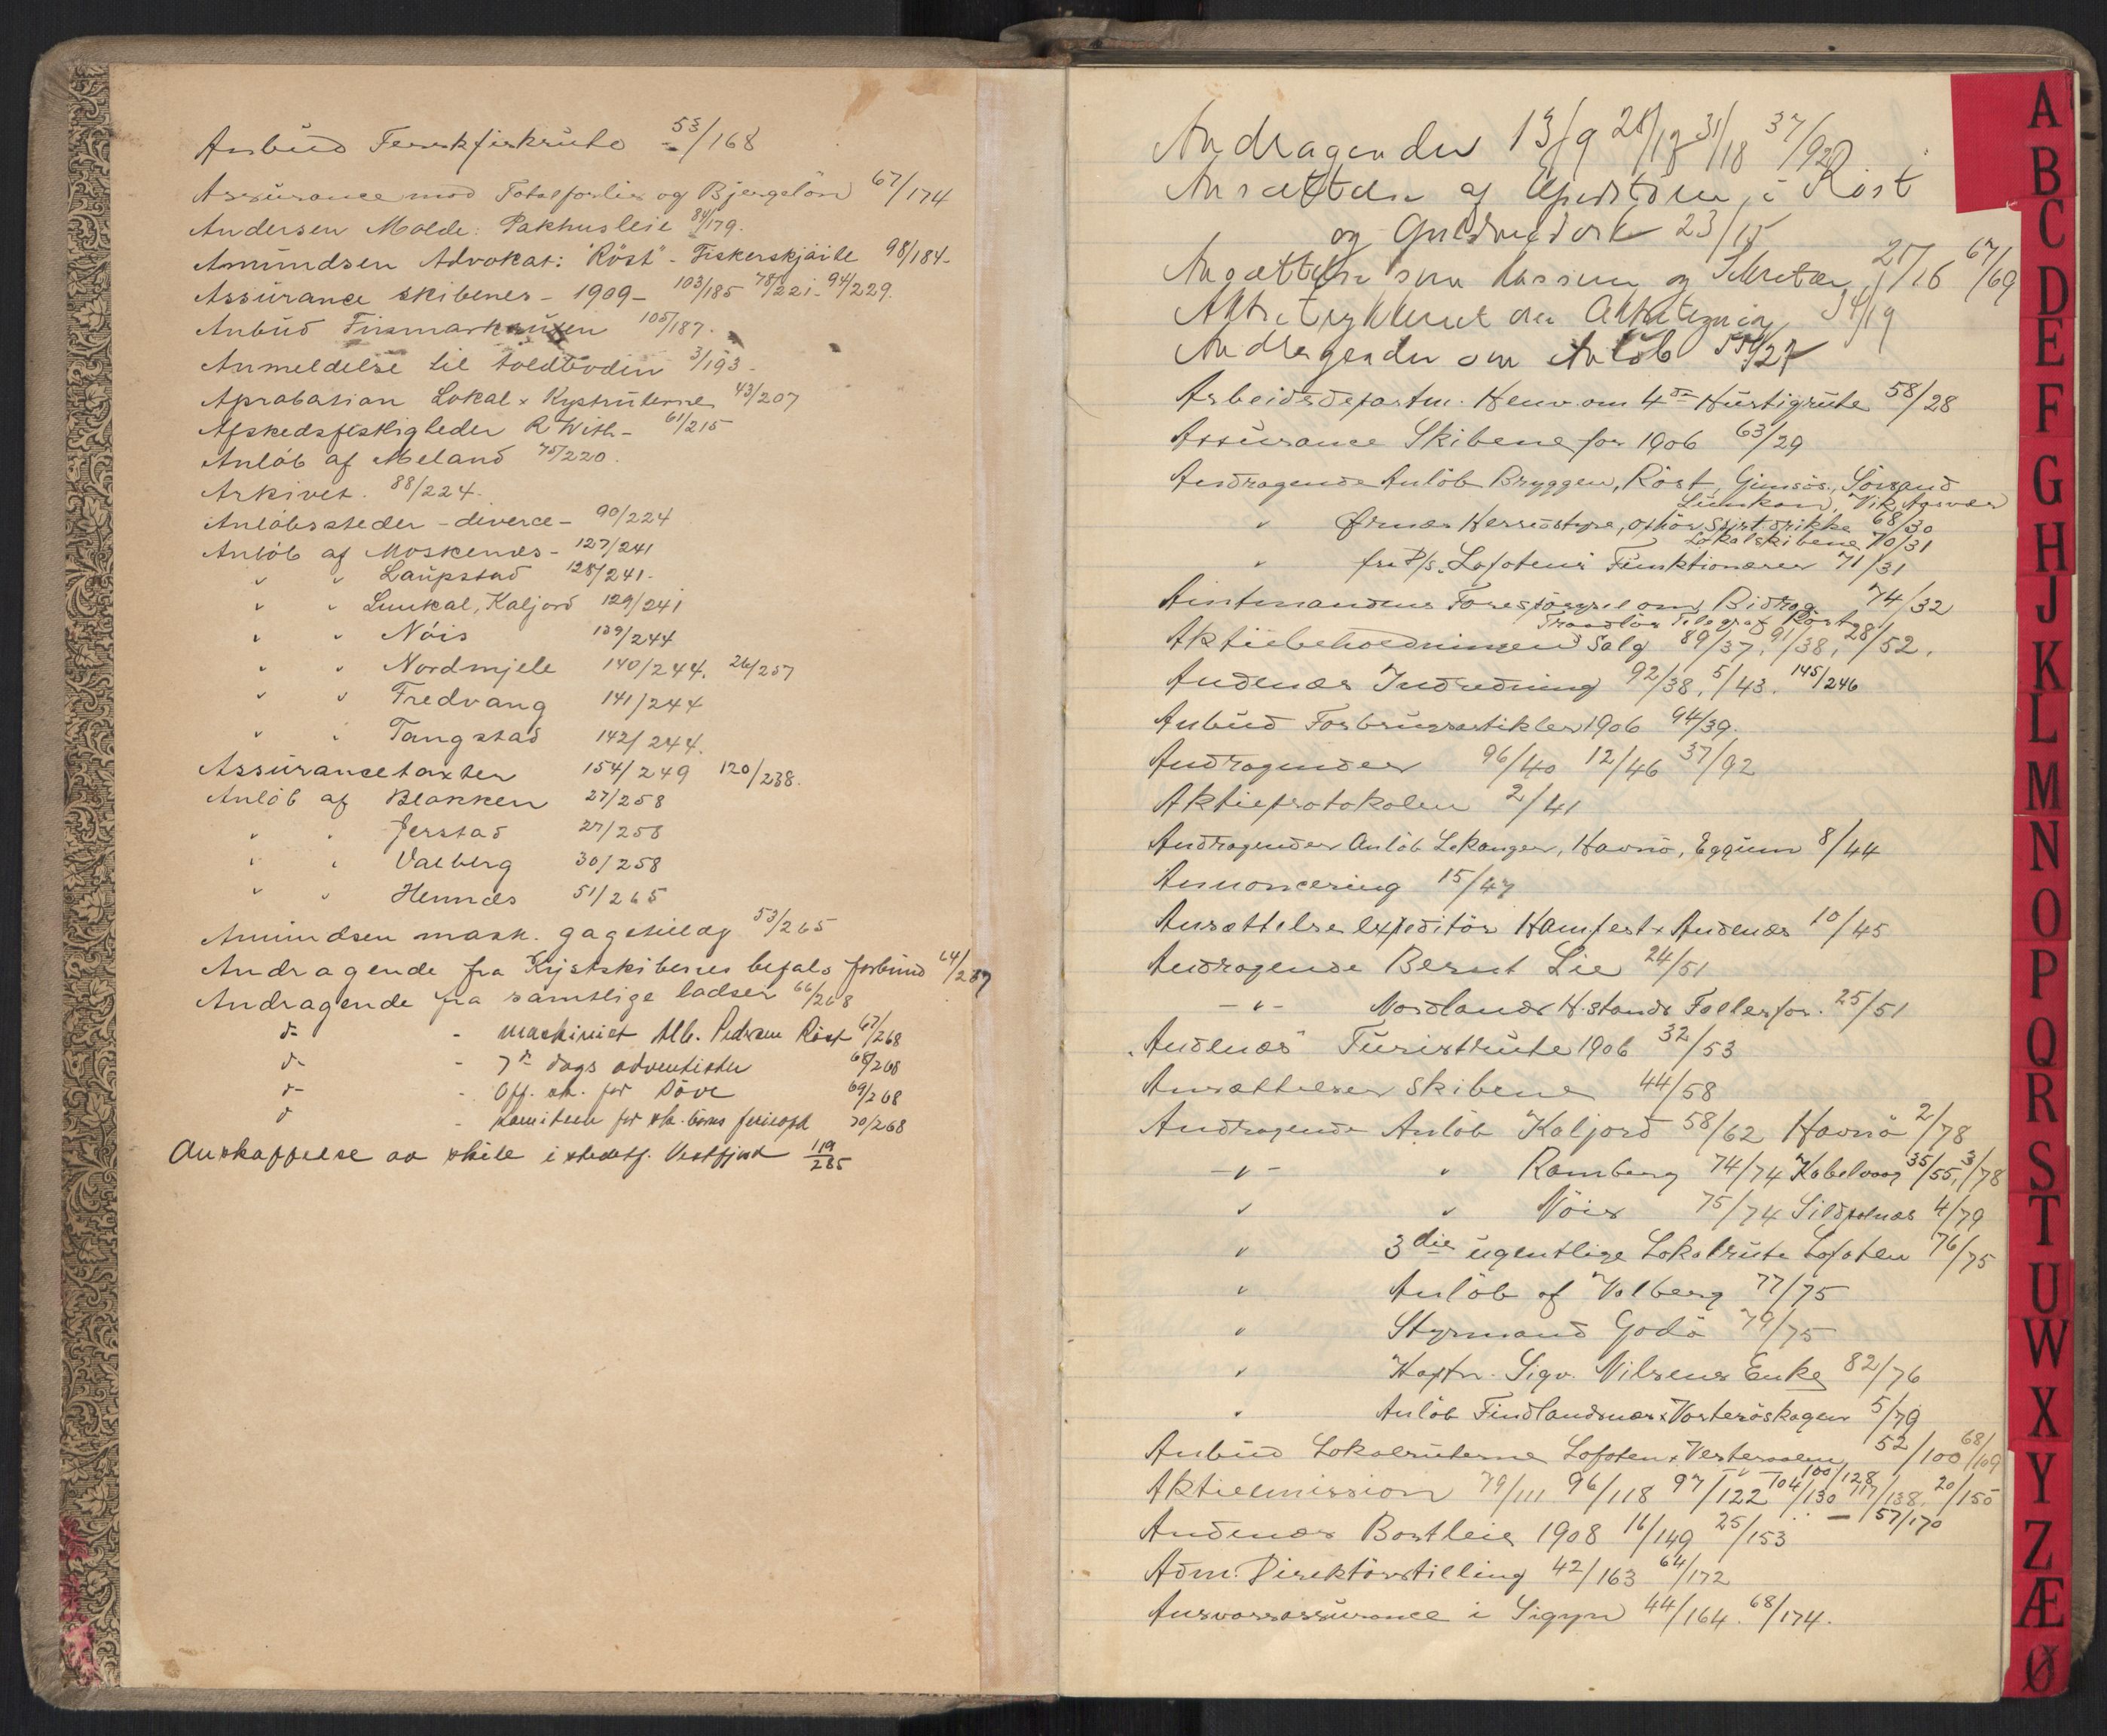 Anbud Ferskfiskrute 53/168
Assurance mod Totalforlis og Bjergelön 67/174
Andersen Molde: Pakhusleie 84/179.
Amundsen Advokat: "Röst" - Fiskerskjöite 98/184-
Assurance skibenes - 1909 - 103/185 78/221- 94/229.
Anbud Finmarkruten 105/187.
Anmeldelse til toldbodin 3/193-
Aprobasian Lokal x Kystruterne 43/207
Afskedsfestligheder R With - 61/215
Anlöb af Meland 75/220.
Arkivet. 88/224-
Anlöbssteder - diverce - 90/224
Anlöb af Moskenes - 127/241
" " Laupstad 128/241-
" " Lunkal, Kaljord 129/241
" " Nöis 139/244
" " Nordmjele 140/244. 26/257
" " Fredvang 141/244
" " Tangstad 142/244.
Assurancetaxter 154/249 120/238.
Anlöb af Blakken 27/258
" " Jerstad 27/258
" " Valberg 30/258
" " Hennes 51/265
Amundsen mask. gagetillæg 53/265
Andragende fra Kystskibenes befals forbund 64/267
Andragende fra samtlige lodser 66/268
do - maskinist Alb. Pedersen Röst 67/268
do - 7de dags adventister 68/268
do - Off. sk. for Döve 69/268
do - Komiteen for sk. börns ferieoph 70/268
Anskaffelse av skib i stedetf. Vestfjord 119/285
Andragender 13/9 28/17 31/18 37/920
Ansættelse af Expeditörer i Röst
og 23/15
Ansættelse som Kasserer og Sekretær 27/16 67/69
Aktietegning 34/19
Andragender om Anlöb 55/27
Arbeidsdepartm. Henv. om 4de Hurtigrute 58/28
Assurance Skibene for 1906 63/29
Andragende Anlöb Bryggen, Röst, Gimsös, Sörsand
Lunkan, Vik, Aasvær
" Örnæs Herredstyre, ophör Spiritdrikke 68/30
Lokalskibene 70/31
" fra D/S "Lofoten"s Funktionærer 71/31
Amtmandens Forespörgsel om Bidrag 74/32
Traadlös Telegraf Röst
Aktiebeholdningens Salg 89/37, 91/38, 28/52.
Andenæs Indredning 92/38, 5/43. 145/246
Anbud Forbrugsartikler 1906 94/39.
Andragender 96/40 12/46 37/92
Aktieprotokolen 2/41
Andragender Anlöb Lekanger, Havnö, Eggum 8/44
Annoncering 15/47
Ansættelse expeditör Hamfest x Andenæs 10/45
Andragende Bernt Lie 24/51
- " - Nordlands H.stands Fellesfor. 25/51
"Andenæs" Turistrute 1906 32/53
Ansættelser Skibene 44/58
Andragende Anlöb Kaljord 58/62 Havnö 2/78
- " - " Ramberg 74/74 Kabelvaag 35/55, 3/78
" " Nöis 75/74 Sildpolnæs 4/79
" 3die ugentlige Lokalrute Lofoten 76/75
" Anlöb af Valberg 77/75
" Styrmand Godö 79/75
" Kaptn. Sigv. Nilsens Enke 82/76
" Anlöb Findlandsnæs x Vorteröskagen 5/79
Anbud Lokalruterne Lofoten x Vesteraalen 52/100 68/109
Aktieemission 79/111 96/118 97/122 100/128 104/130 117/138, 20/150
57/170
Andenæs Bortleie 1908 16/149 25/153
Adm. Direktörstilling 42/163 64/172
Ansvarsassurance i Sigyn 44/164. 68/174.
A
B
C
D
E
F
G
H
J
K
L
M
N
O
P
Q
R
S
T
U
W
X
Y
Z
Æ
Ø